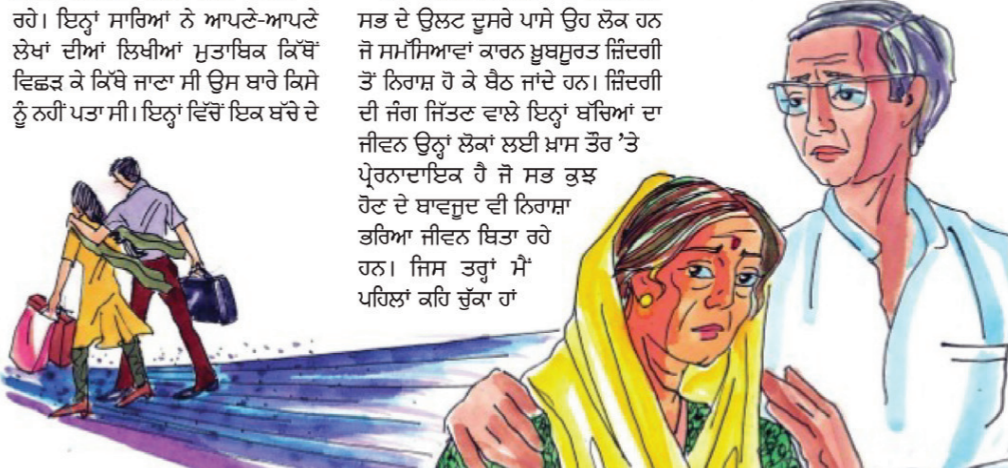 ਰਹੇ। ਇਨ੍ਹਾਂ ਸਾਰਿਆਂ ਨੇ ਆਪਣੇ-ਆਪਣੇ
ਲੇਖਾਂ ਦੀਆਂ ਲਿਖੀਆਂ ਮੁਤਾਬਿਕ ਕਿੱਥੋਂ
ਵਿਛੜ ਕੇ ਕਿੱਥੇ ਜਾਣਾ ਸੀ ਉਸ ਬਾਰੇ ਕਿਸੇ
ਨੂੰ ਨਹੀਂ ਪਤਾ ਸੀ। ਇਨ੍ਹਾਂ ਵਿੱਚੋਂ ਇਕ ਬੱਚੇ ਦੇ
ਸਭ ਦੇ ਉਲਟ ਦੂਸਰੇ ਪਾਸੇ ਉਹ ਲੋਕ ਹਨ
ਜੋ ਸਮੱਸਿਆਵਾਂ ਕਾਰਨ ਖ਼ੂਬਸੂਰਤ ਜ਼ਿੰਦਗੀ
ਤੋਂ ਨਿਰਾਸ਼ ਹੋ ਕੇ ਬੈਠ ਜਾਂਦੇ ਹਨ। ਜ਼ਿੰਦਗੀ
ਦੀ ਜੰਗ ਜਿੱਤਣ ਵਾਲੇ ਇਨ੍ਹਾਂ ਬੱਚਿਆਂ ਦਾ
ਜੀਵਨ ਉਨ੍ਹਾਂ ਲੋਕਾਂ ਲਈ ਖ਼ਾਸ ਤੌਰ ’ਤੇ
ਪ੍ਰੇਰਨਾਦਾਇਕ ਹੈ ਜੋ ਸਭ ਕੁਝ
ਹੋਣ ਦੇ ਬਾਵਜੂਦ ਵੀ ਨਿਰਾਸ਼ਾ
ਭਰਿਆ ਜੀਵਨ ਬਿਤਾ ਰਹੇ
ਹਨ। ਜਿਸ ਤਰ੍ਹਾਂ ਮੈਂ
ਪਹਿਲਾਂ ਕਹਿ ਚੁੱਕਾ ਹਾਂ